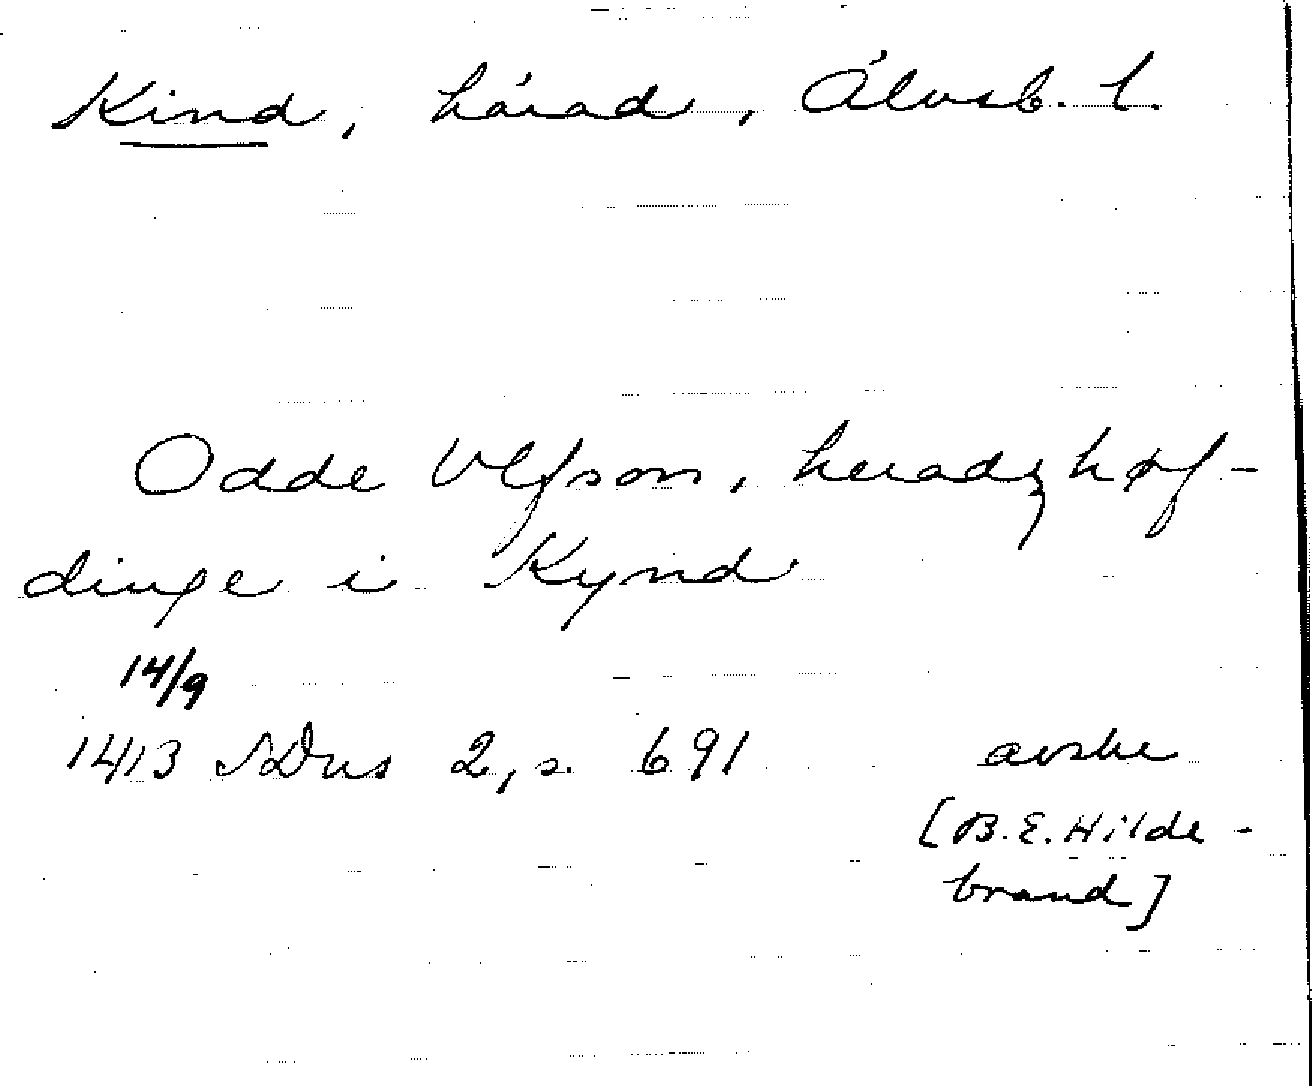 Kind, härad, Älvsb. l.
Odde Vlfson, heradzhøf-
dinge i Kynd
14/9
1413 SDns 2, s. 691 avskr
[B.E. Hilde-
brand]